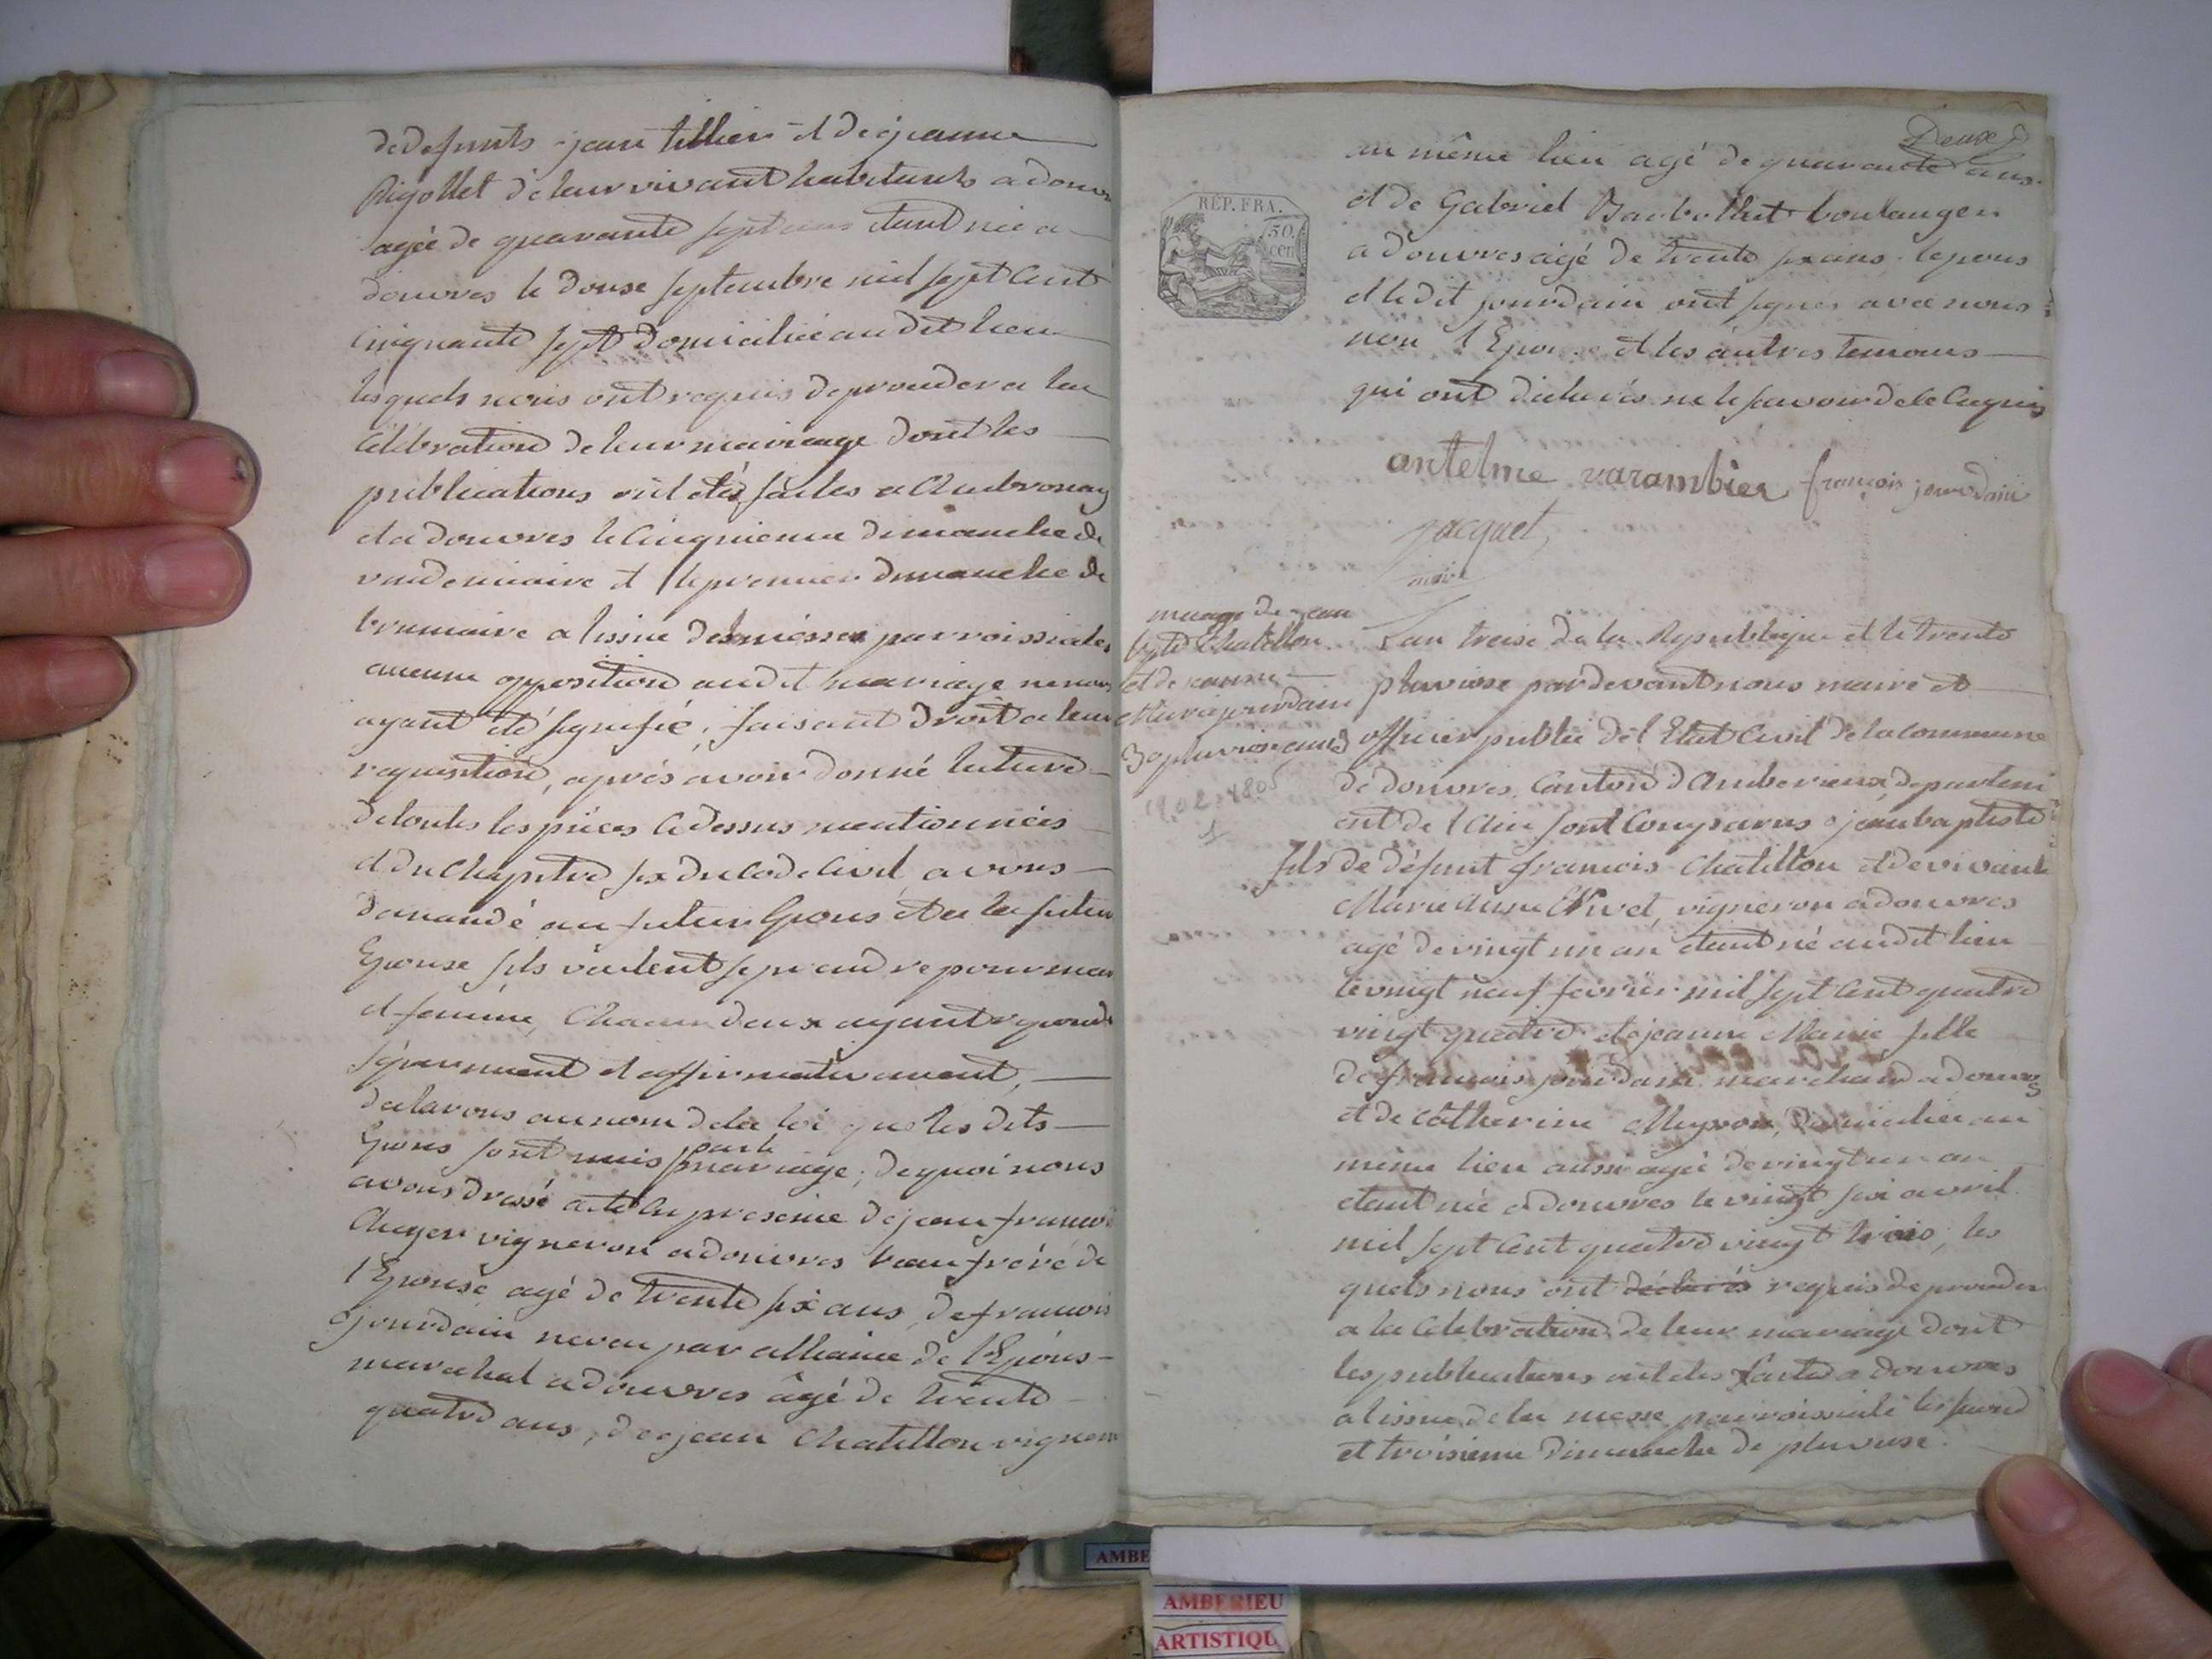 de defunts jean tillier et de jeanne
Rigollet de leur vivant habitants a douvres
agée de quarante sept ans etant née a
douvres le douse septembre mil sept cent
cinquante sept domiciliée au dit lieu
lesquels nous ont requis de proceder a la
célébration de leur mariage dont les
publications ont étés faites a Ambronay
et a douvres le cinquieme dimanche de
vendemiaire et le premier dimanche de
brumaire a lissue des messes parroissiales
aucune opposition audit mariage ne nous
ayant été signifié, faisant droit a leur
requisition, aprés avoir donné lecture
de toutes les piéces cidessus mentionnées
et du chapitre six du code civil avons
demandé au futur Epous et a la future
Epouse sils veulent se prendre pour mari
et femme, chacun deux ayant repondu
séparement et affirmativement,
declarons au nom de la loi que les dits
Epous sont unis par le mariage; de quoi nous
avons dressé acte en presence de jean francois
Auger vigneron a douvres beaufrére de
l'Epouse agé de trente six ans, de francois
jourdain neveu par alliance de l'Epous
marechal a douvres âgé de trente
quatre ans, de jean Chatillon vigneron
Deux
au même lieu agé de quarante ans
RÉP. FRA.
50.
cen
et de Gabriel Barbollat boulanger
a douvres agé de trente six ans. lepous
et ledit jourdain ont signés avec nous
non l'Epouse et les autres temoins
qui ont déclarés ne le savoir de ce enquis
antelme varambier françois jourdain
jacquet,
maire
mariage de jean
bpte Chatillon
et de jeanne
Marie jourdain
30 pluviose an 13
19.02.1805
1
Lan treise de la Republique et le trente
pluviose pardevant nous maire et
officier public de l'Etat Civil de la Commune
de douvres, Canton d'Amberieux, departem
ent de l'Ain sont Comparus jean baptiste
fils de défunt francois Chatillon et de vivante
Marie Anne Nivet, vigneron a douvres
agé de vingt un an etant né audit lieu
le vingt neuf fevrier mil sept cent quatre
vingt quatre et jeanne Marie fille
de francois jourdain marchand a douvres
et de catherine Mugron, domiciliée au
même lieu aussi agée de vingt un an
etant née a douvres le vingt six avril
mil sept cent quatre vingt trois; les
quels nous ont déclarés requis de proceder
a la célébration de leur mariage dont
les publications ont etés faites a douvres
a lissue de la messe parroissiale les second
et troisieme dimanche de pluviose.
AMBE
AMBERIEU
ARTISTIQU